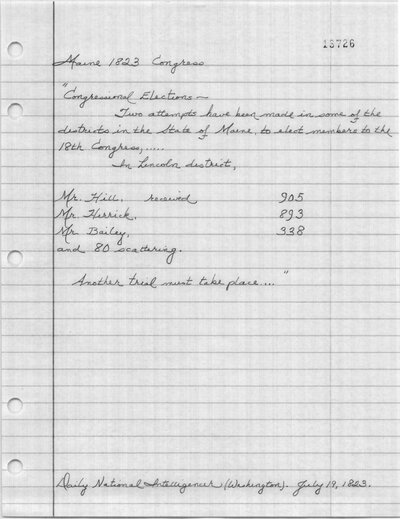 13726
Maine 1823 Congress
"Congressional Elections—
Two attempts have been made in some of the
districts in the State of Maine, to elect members to the
18th Congress,.....
In Lincoln district,
Mr. Hill, received 905
Mr. Herrick, 893
Mr. Bailey, 338
and 80 scattering.
Another trial must take place...."
Daily National Intelligencer (Washington). July 19, 1823.